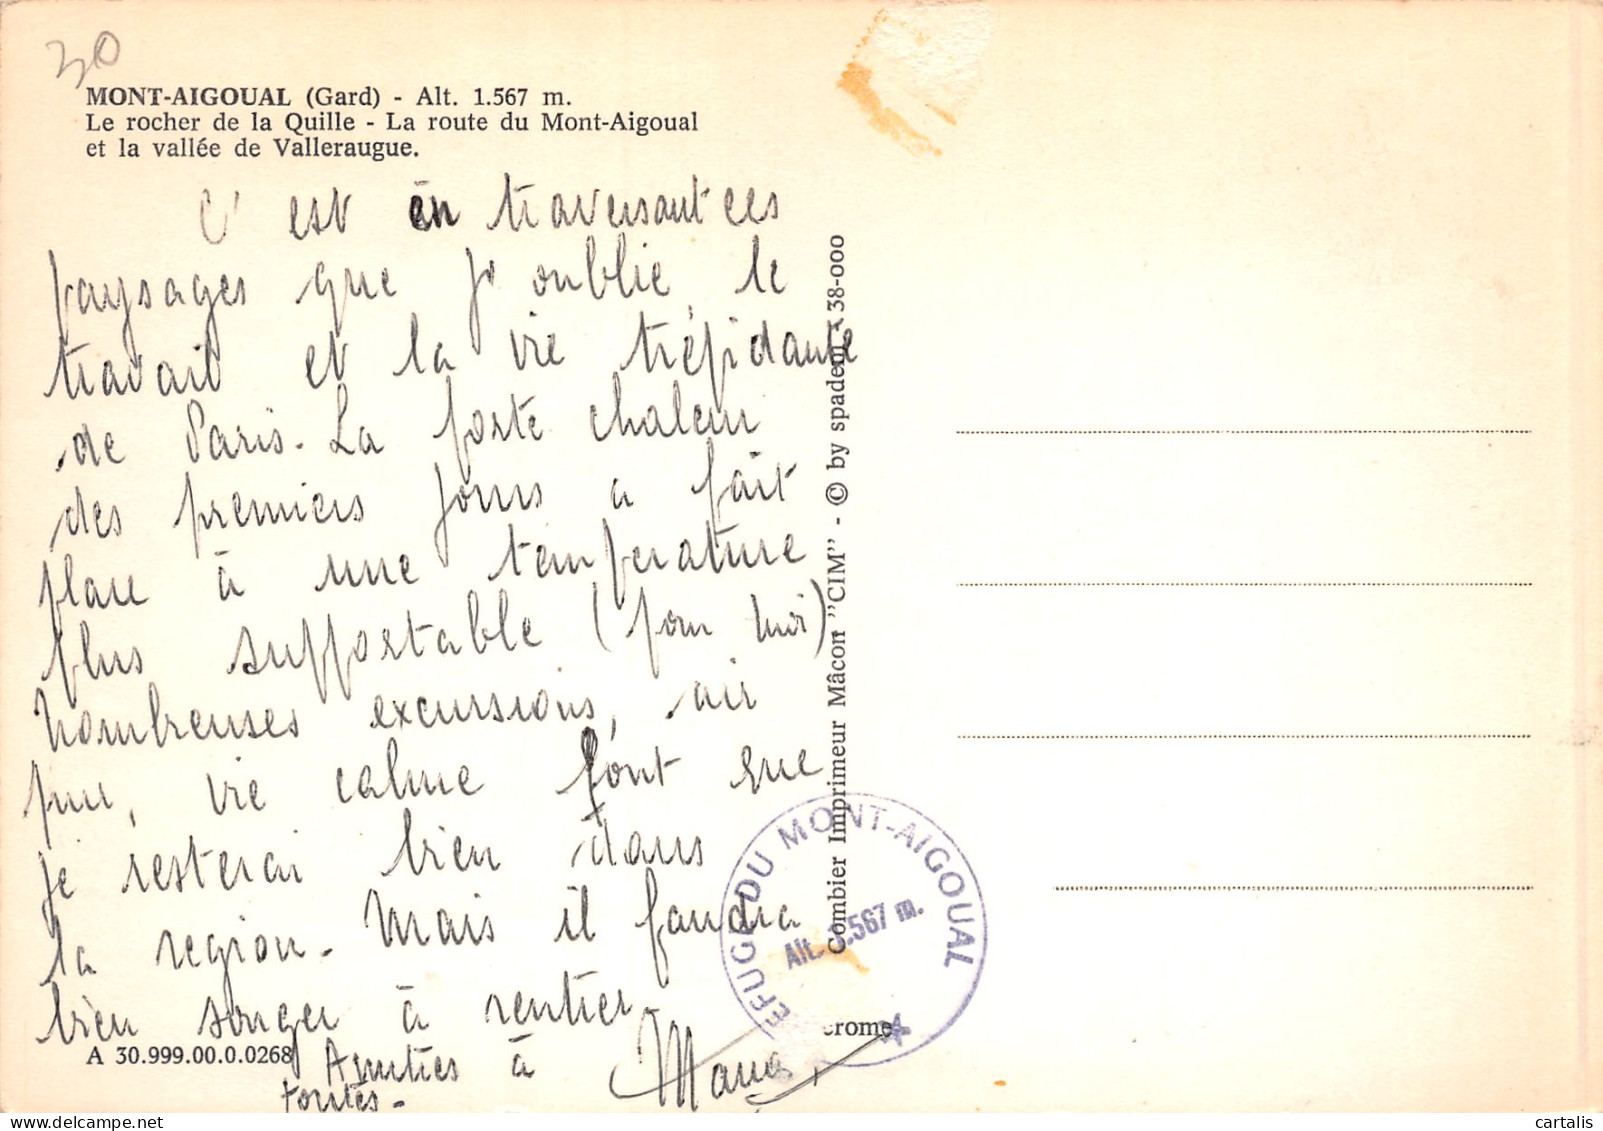 30
MONT-AIGOUAL (Gard) - Alt. 1.567 m.
Le rocher de la Quille - La route du Mont-Aigoual
et la vallée de Valleraugue.
C'est en traversant ces
paysages que j'oublie le
travail et la vie trépidante
de Paris. La forte chaleur
des premiers jours a fait
place à une température
plus supportable (pour moi)
Nombreuses excursions, air
pur, vie calme font que
je resterai bien dans
la region. Mais il faudra
bien songer à rentrer.
Amitiés à
toutes.
A 30.999.00.0.0268
Combier Imprimeur Mâcon "CIM" - © by spadem 38-000
EFUGE DU MONT-AIGOUAL
Alt. 1.567 m.
crome
cartalis
delcampe.net